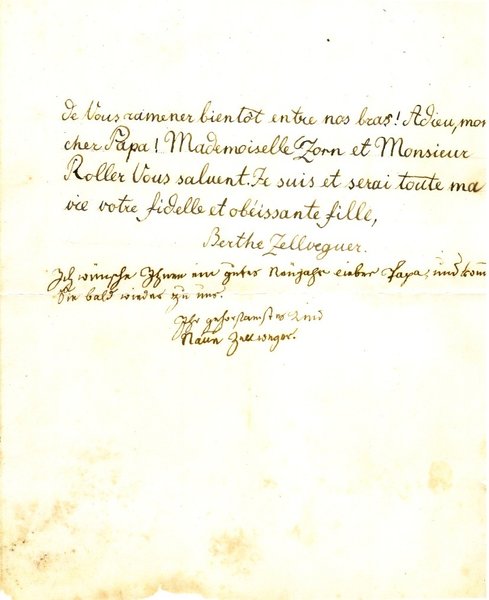 de Vous ramener bientôt entre nos bras! Adieu, mon
cher Papa! Mademoiselle Zorn et Monsieur
Roller Vous saluent. Je suis et serai toute ma
vie votre fidelle et obéissante fille,
Berthe Zellveguer.
Ich wünsche Ihnen ein gutes Neujahr lieber Papa, und kom
Sie bald wieder zu uns.
Ihr gehorsamstes Kind
Zellweger.